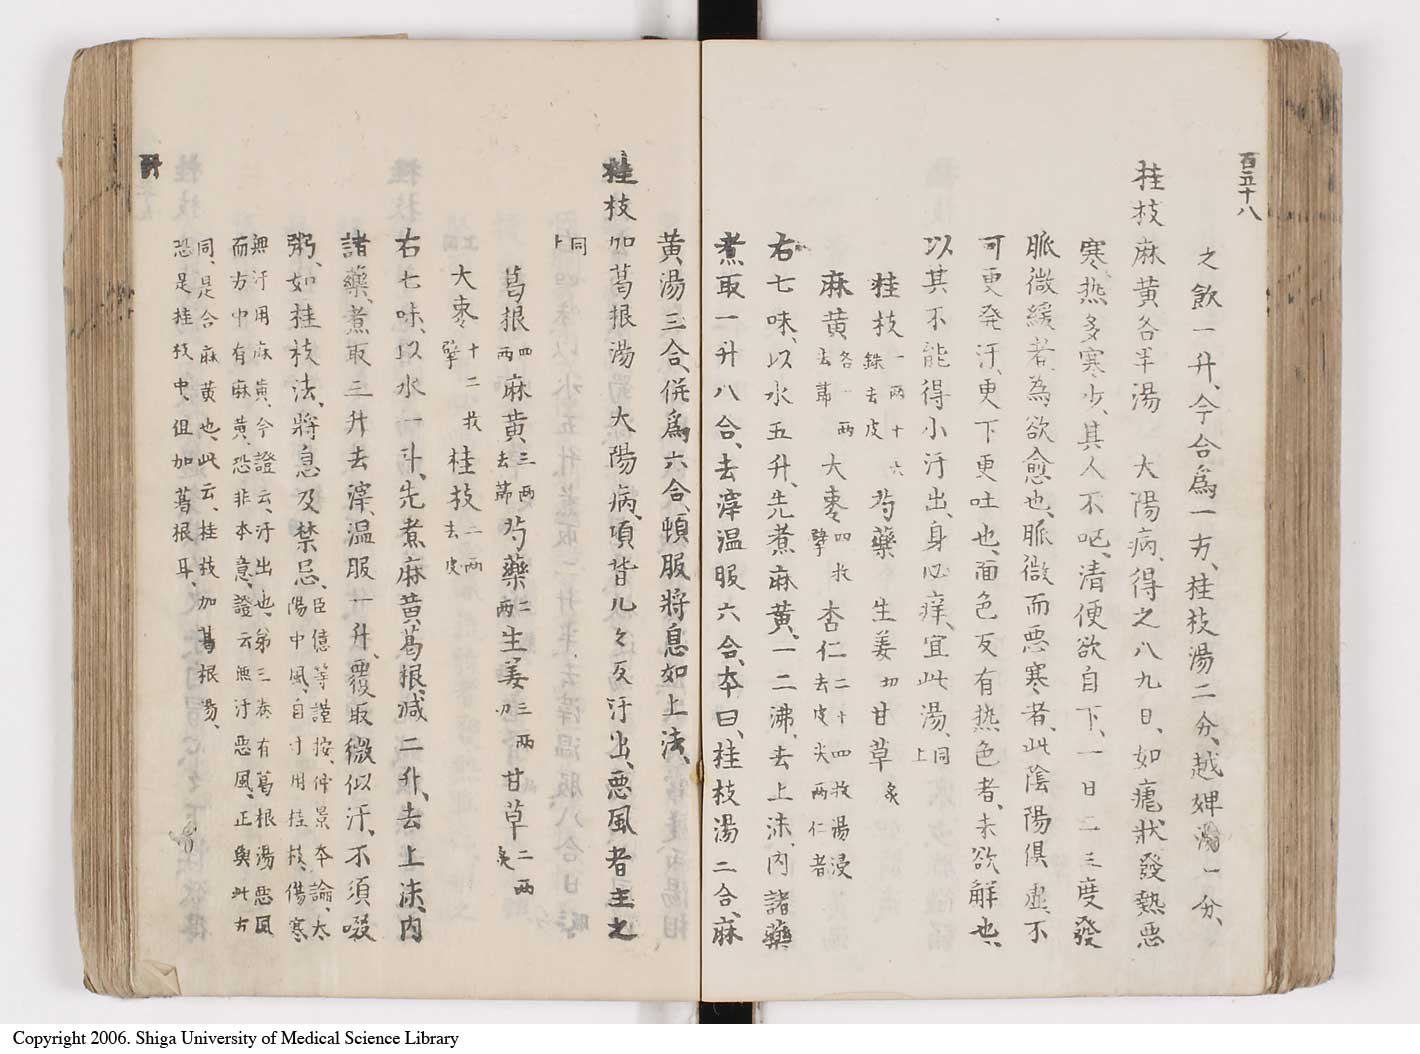 百五十八
之飲一升、今合爲一方、桂枝湯二分、越婢湯一分、
桂枝麻黄各半湯 大陽病、得之八九日、如瘧狀發熱惡
寒热多寒少、其人不呕、清便欲自下、一日二三度發
脈微緩者、為欲愈也、脈微而悪寒者、此陰陽俱虚、不
可更発汗、更下更吐也、面色反有热色者、未欲解也、
以其不能得小汗出、身必痒、宜此湯、同上
桂枝一両十六銖去皮 芍藥 生姜切 甘草炙
麻黄各一两去節 大棗四枚擘 杏仁二十四枚湯浸去皮尖两仁者
右七味、以水五升、先煮麻黄、一二沸、去上沫、内諸藥
煮取一升八合、去滓温服六合、本曰、桂枝湯二合、麻
黄湯三合、併爲六合、頓服將息如上法、
桂枝加葛根湯 大陽病、項背几々反汗出、悪風者主之
同上
葛根四両 麻黄三两去節 芍藥二两 生姜三两切 甘草二两炙
大棗十二枚擘 桂枝二两去皮
右七味、以水一斗、先煮麻黄、葛根、減二升、去上沫、内
諸藥、煮取三升去滓、温服一升、覆取微似汗、不須啜
粥、如桂枝法、將息及禁忌、臣億等謹按、仲景本論、太陽中風、自汗用桂枝、傷寒
無汗用麻黄、今證云、汗出也、第三卷有葛根湯悪風
而方中有麻黄、恐非本意、證云無汗惡風、正與此方
同、是合麻黄也、此云、桂枝加葛根湯、
恐是桂枝中、但加葛根耳、